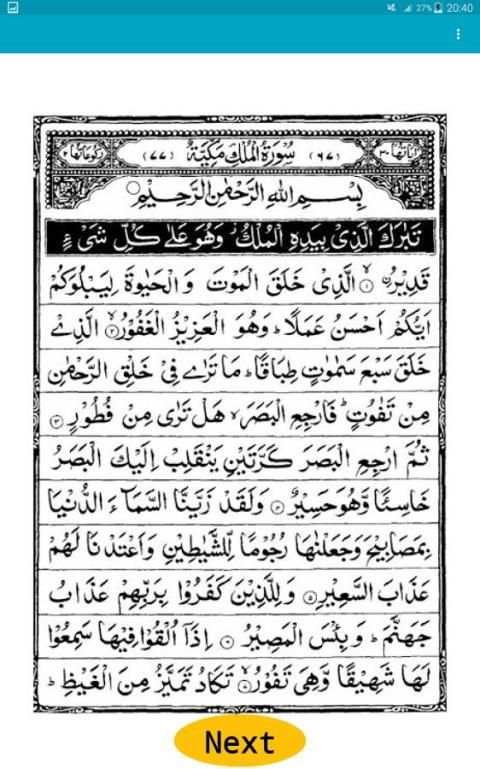 27% 20:40
اٰيَاتُهَا ٣٠ (٦٧) سُوْرَةُ الْمُلْكِ مَكِّيَّةٌ (٧٧) رُكُوْعَاتُهَا ٢
بِسْمِ اللّٰهِ الرَّحْمٰنِ الرَّحِيْمِ
تَبٰرَكَ الَّذِىْ بِيَدِهِ الْمُلْكُ ز وَهُوَ عَلٰى كُلِّ شَىْءٍ
قَدِيْرُ ۨ ۙ١ الَّذِىْ خَلَقَ الْمَوْتَ وَالْحَيٰوةَ لِيَبْلُوَكُمْ
اَيُّكُمْ اَحْسَنُ عَمَلًا ط وَهُوَ الْعَزِيْزُ الْغَفُوْرُ ۙ٢ الَّذِىْ
خَلَقَ سَبْعَ سَمٰوٰتٍ طِبَاقًا ط مَا تَرٰى فِىْ خَلْقِ الرَّحْمٰنِ
مِنْ تَفٰوُتٍ ط فَارْجِعِ الْبَصَرَ لا هَلْ تَرٰى مِنْ فُطُوْرٍ ٣
ثُمَّ ارْجِعِ الْبَصَرَ كَرَّتَيْنِ يَنْقَلِبْ اِلَيْكَ الْبَصَرُ
خَاسِئًا وَّهُوَ حَسِيْرٌ ٤ وَلَقَدْ زَيَّنَّا السَّمَآءَ الدُّنْيَا
بِمَصَابِيْحَ وَجَعَلْنٰهَا رُجُوْمًا لِّلشَّيٰطِيْنِ وَاَعْتَدْنَا لَهُمْ
عَذَابَ السَّعِيْرِ ٥ وَلِلَّذِيْنَ كَفَرُوْا بِرَبِّهِمْ عَذَابُ
جَهَنَّمَ ط وَبِئْسَ الْمَصِيْرُ ٦ اِذَآ اُلْقُوْا فِيْهَا سَمِعُوْا
لَهَا شَهِيْقًا وَّهِىَ تَفُوْرُ ۙ٧ تَكَادُ تَمَيَّزُ مِنَ الْغَيْظِ ط
Next